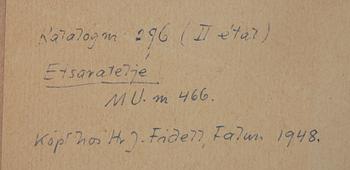 Katalognr 296 (II état)
Etsaratetjé
MU. nr 466.
Köpt hos Hr J. Fidell, Falun 1948.